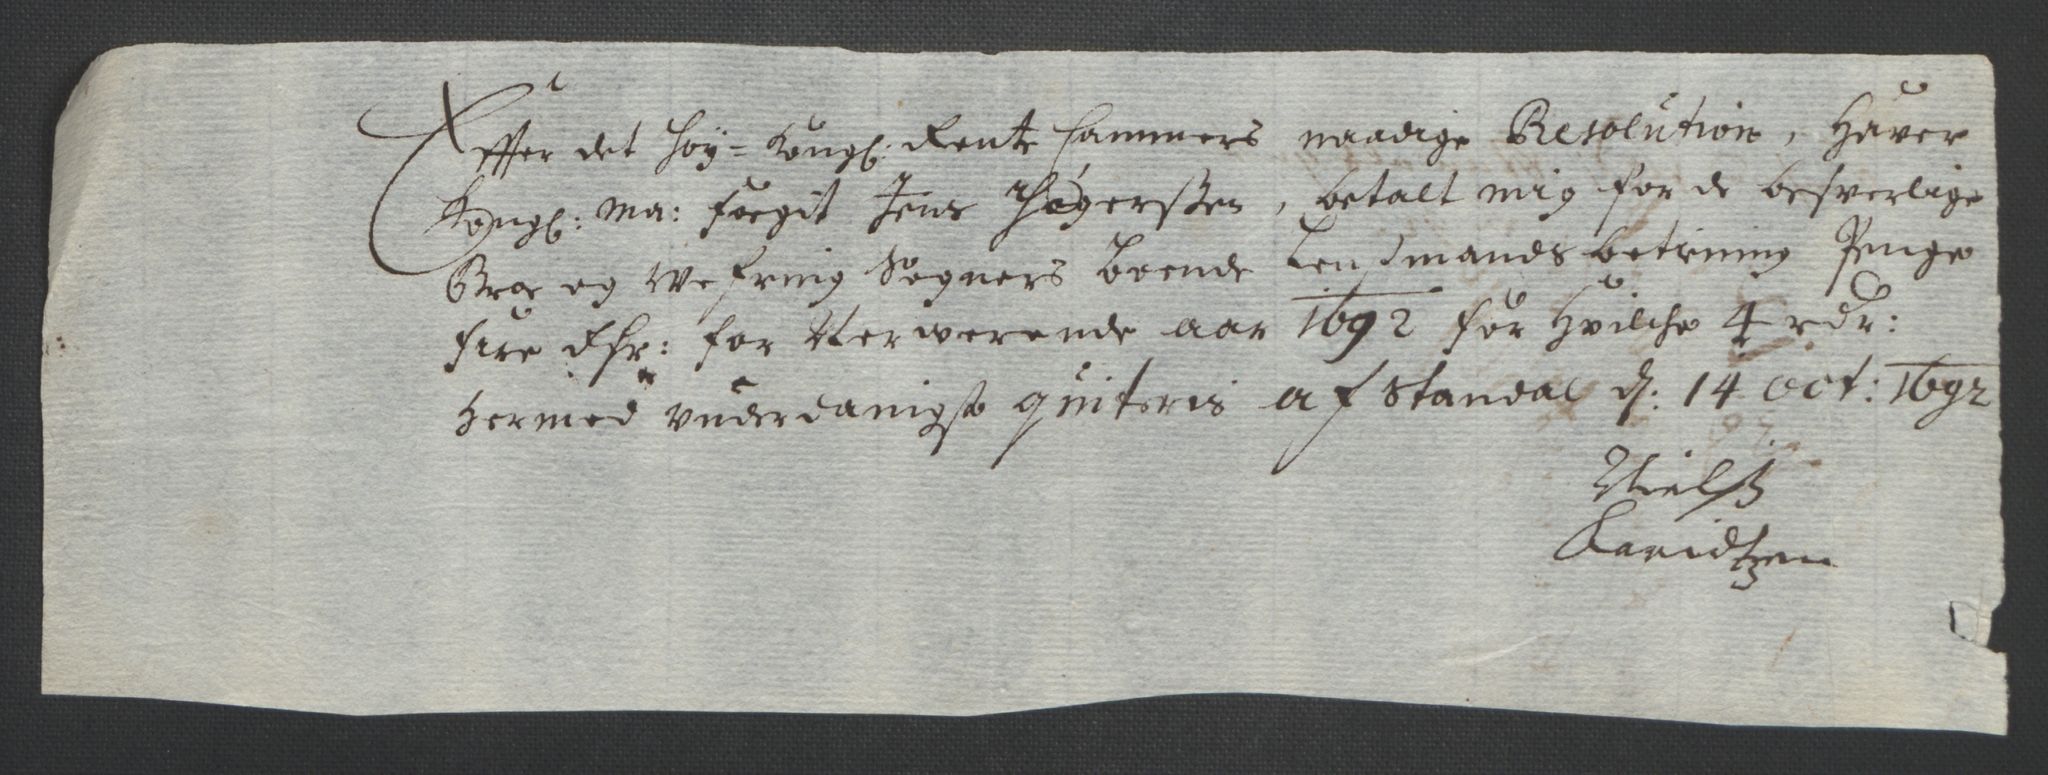 Effter det høy- Kongl: Rente Cammers naadige Resolution, Haver
Kongl: Ma: Foegit Jens Pføgersßen, betalt mig for de besverlige
Broe og Wefring Sogners boende Lenßmands betiening Penge
fire Rdr: for nerwerende aar 1692 for Hvilche 4 rdr:
hermed underdanigst quiteris af Standal d: 14 Oct: 1692
Nielß
Davidtzen